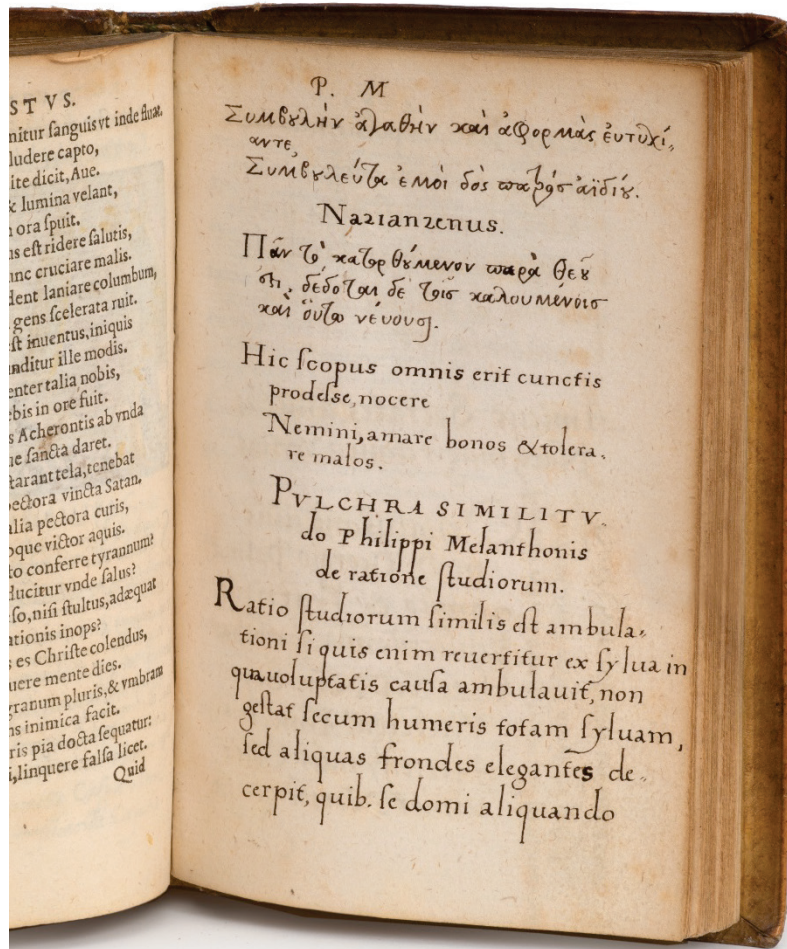 STVS.
nitur sanguis vt inde fluat.
ludere capto,
ite dicit, Aue.
& lumina velant,
ora spuit.
ns est ridere salutis,
unc cruciare malis.
dent laniare columbum,
gens scelerata ruit.
est inuentus, iniquis
nditur ille modis.
enter talia nobis,
ebis in ore fuit.
s Acherontis ab vnda
ue sancta daret.
tarant tela, tenebat
pectora vincta Satan.
alia pectora curis,
oque victor aquis.
to conferre tyrannum?
ducitur vnde salus?
so, nisi stultus, adæquat
ationis inops?
s es Christe colendus,
uere mente dies.
granum pluris, & vmbram
ns inimica facit.
ris pia docta sequatur:
i, linquere falsa licet.
Quid
P. M
Συμβȣλὴν ἀγαθὴν καὶ ἀφορμὰς ἐυτυχί,,
αντε
Συμβȣλεύτα ἐμοὶ δὸς πατρὸς αἰδίȣ.
Nazianzenus.
Πᾶν τὸ κατορθȣ́μενον παρὰ θεȣ
στι, δέδοται δὲ τοῖς καλουμένοις
καὶ ὅυτω νέυουσι.
Hic scopus omnis erit cunctis
prodesse, nocere
Nemini, amare bonos & tolera,
re malos.
PVLCHRA SIMILITV.
do Philippi Melanthonis
de ratione studiorum.
Ratio studiorum similis est ambula,,
tioni si quis enim reuertitur ex sylua in
qua uoluptatis causa ambulauit, non
gestat secum humeris totam syluam,
sed aliquas frondes elegantes de,,
cerpit, quib. se domi aliquando